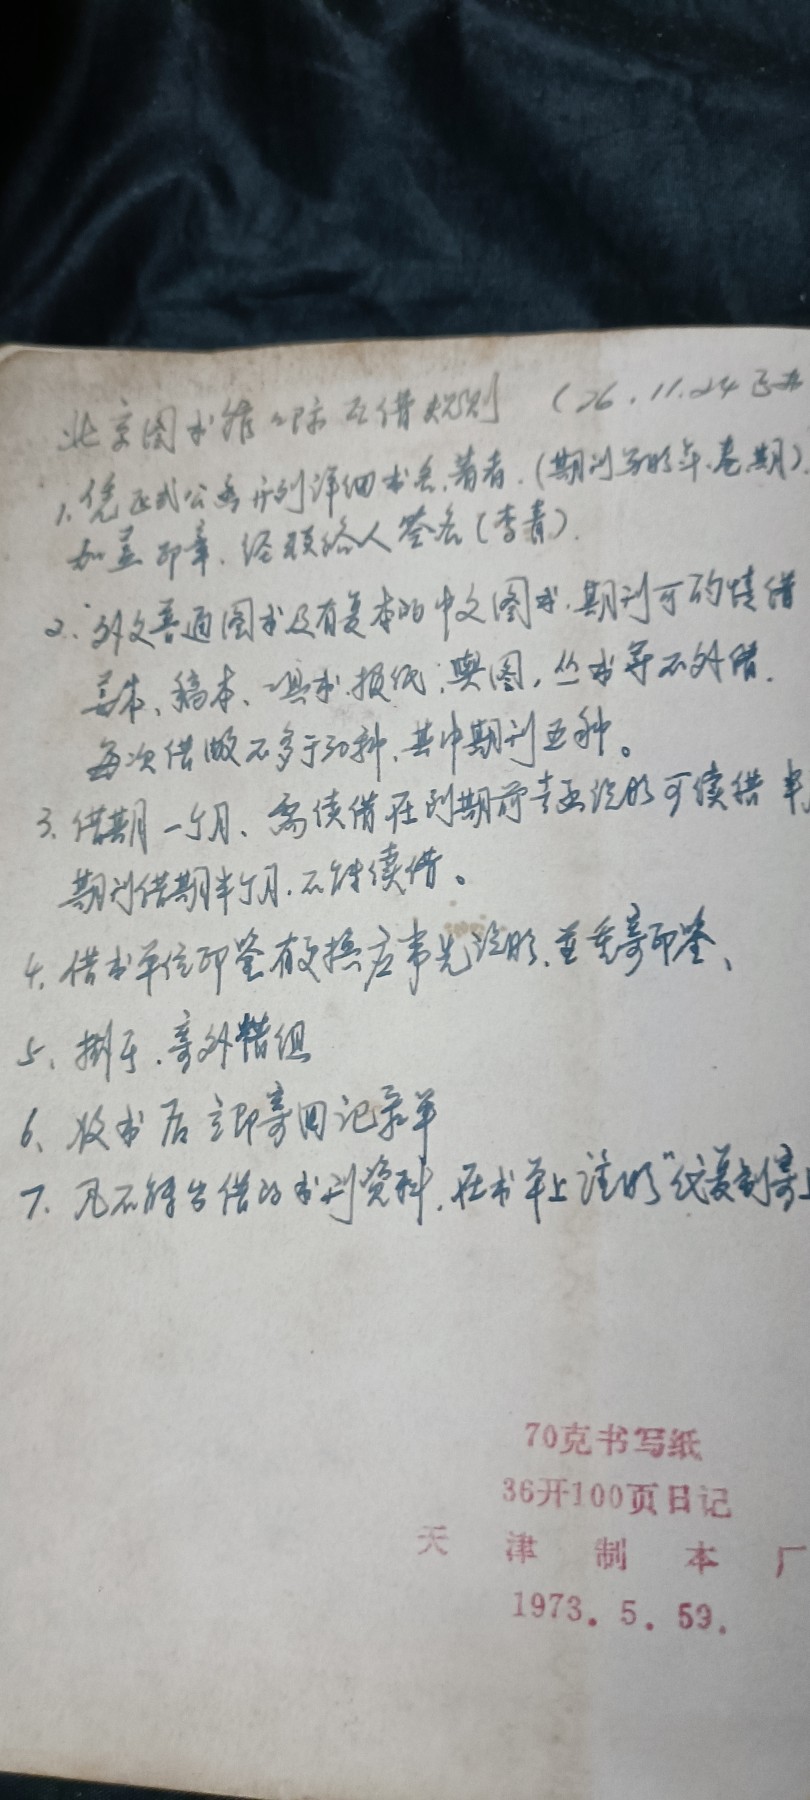 北京图书馆 互借规则 (76.11.24
1、凭正式公函开列详细书名、著者、(期刊写明年、卷、期)、
加盖印章、经 人签名(李青)。
2、外文普通图书及有复本的中文图书、期刊可酌情借
善本、稿本、 报纸、舆图,丛书等不外借.
每次借 不多于30种、其中期刊五种。
3、借期一个月、需续借在到期前 说明可续借
期刊借期半个月、不能续借。
4、借书单位印鉴有更换应事先说明、并重寄印鉴、
5、挂号、寄外借组
6、收书后立即寄回记录单
7、凡不能出借的书刊资料、在书单上注明"代复制寄
70克书写纸
36开100页日记
天津制本厂
1973.5.59.